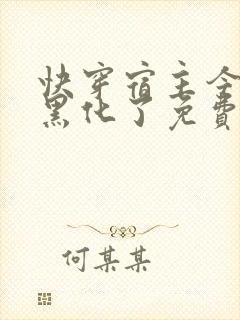 快穿宿主全
黑化了免費
何某某